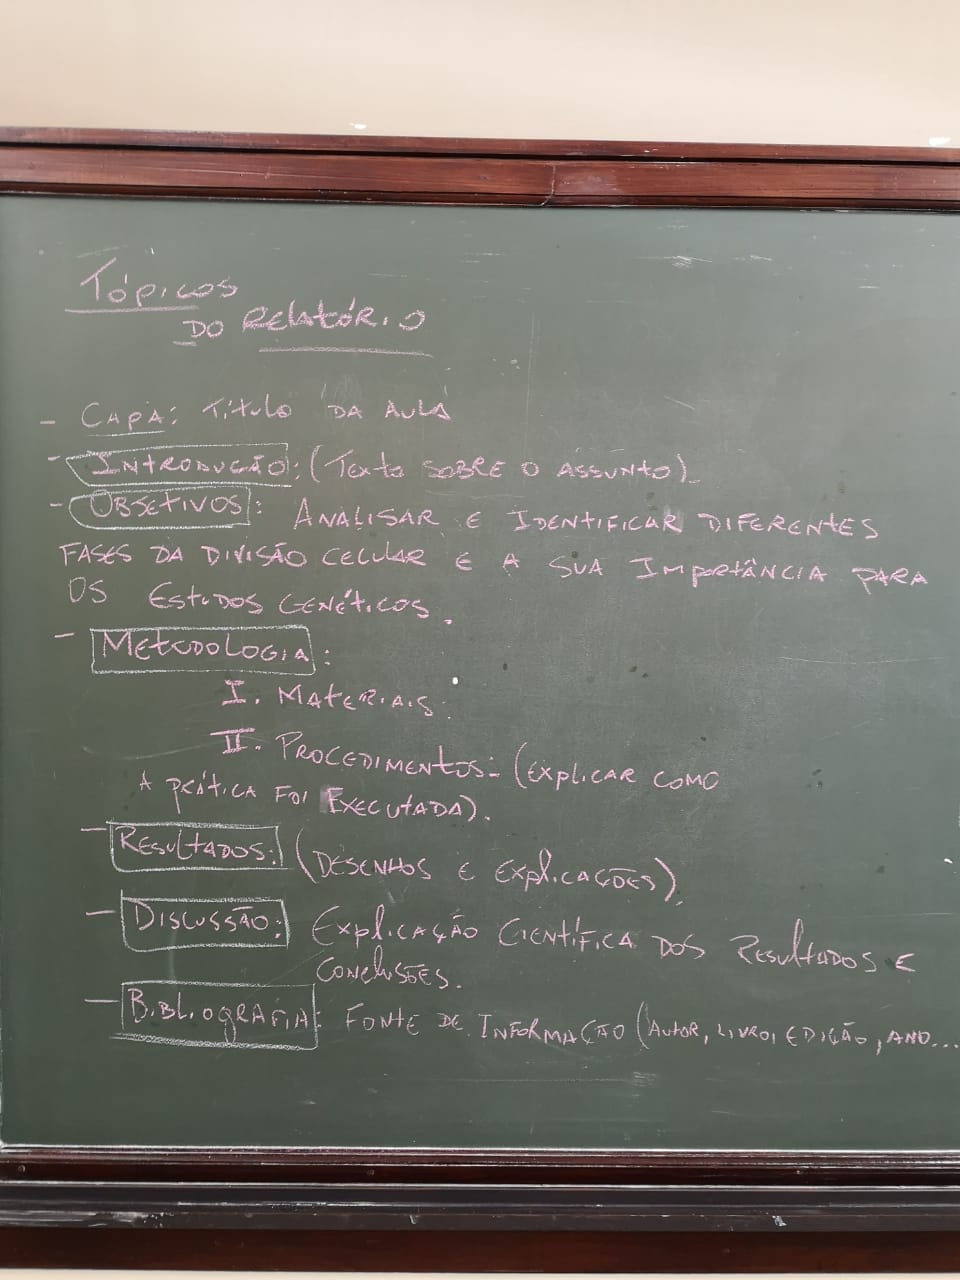 Tópicos
do Relatório
- Capa: Título da Aula
- Introdução: (Texto sobre o assunto)
- Objetivos: Analisar e identificar diferentes
fases da divisão celular e a sua importância para
os estudos genéticos.
- Metodologia:
I. Materiais:
II. Procedimentos: (explicar como
a prática foi executada).
- Resultados: (Desenhos e explicações)
- Discussão: Explicação científica dos resultados e
conclusões.
- Bibliografia: Fonte de informação (autor, livro, edição, ano...